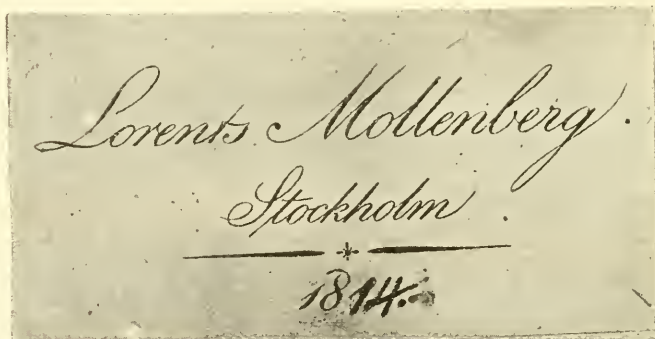 Lorents Mollenberg.
Stockholm.
1814.